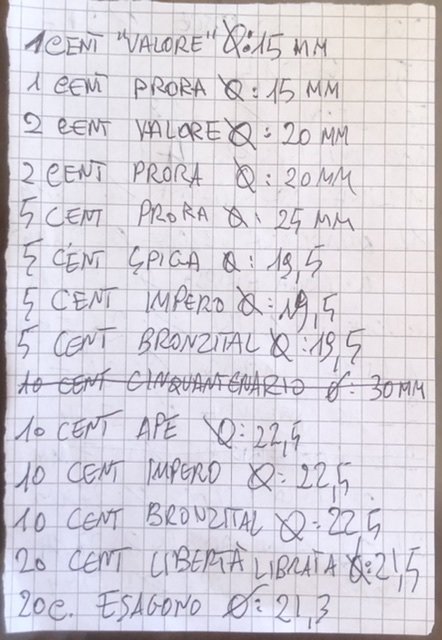 1 CENT "VALORE" Ø: 15 MM
1 CENT PRORA Ø: 15 MM
2 CENT VALORE Ø: 20 MM
2 CENT PRORA Ø: 20 MM
5 CENT PRORA Ø: 25 MM
5 CENT SPIGA Ø: 19,5
5 CENT IMPERO Ø: 19,5
5 CENT BRONZITAL Ø: 19,5
10 CENT CINQUANTENARIO Ø: 30 MM
10 CENT APE Ø: 22,5
10 CENT IMPERO Ø: 22,5
10 CENT BRONZITAL Ø: 22,5
20 CENT LIBERTÀ LIBRATA Ø: 21,5
20 C. ESAGONO Ø: 21,3